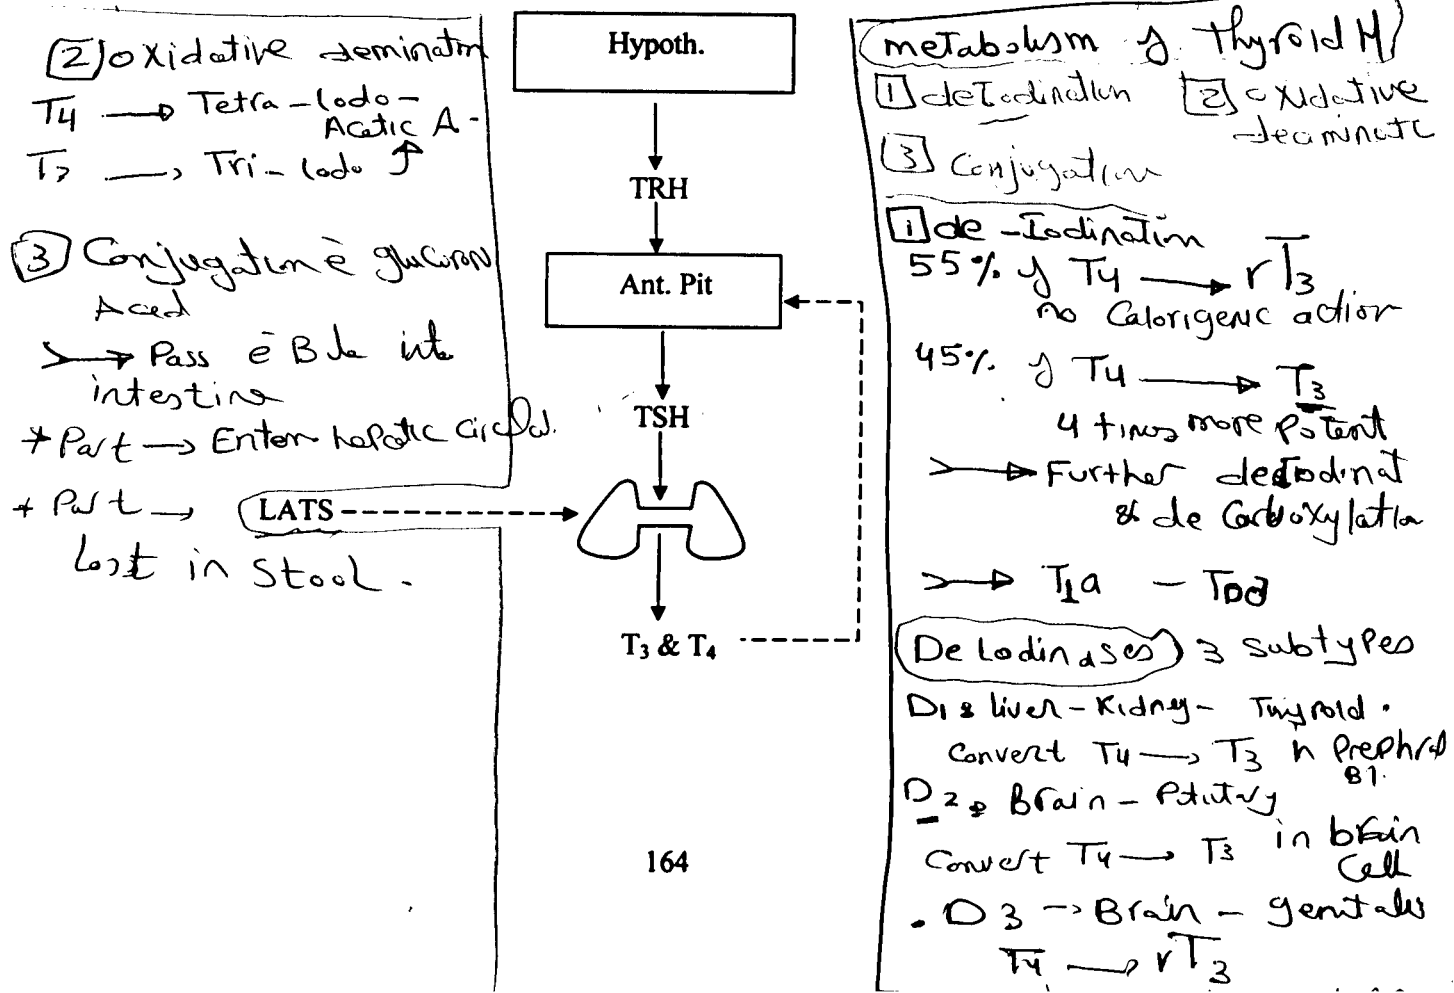 [2] oxidative deminatm
T4 → Tetra-Iodo-
Acetic A.
T3 → Tri-Iodo ↑
(3) Conjugation è glucoron
Aced
→ Pass è Bile into
intestine
* Part → Enter hepatic circulat.
* Part →
Lost in Stool.
LATS
Hypoth.
TRH
Ant. Pit
TSH
T₃ & T₄
164
metabolism of thyroid H
[1] deIodination [2] oxidative
deaminate
[3] Conjugation
[1] de-Iodination
55% of T4 → rT3
no Calorigenic action
45% of T4 → T3
4 times more potent
→ Further deIodinat
& de Carboxylation
→ T1a - T0a
DeIodinases 3 subtypes
D1: liver-Kidney- Thyroid.
Convert T4 → T3 in
D2: Brain - Pitutary
Convert T4 → T3 in brain
Cell
. D3 → Brain - genitales
T4 → rT3